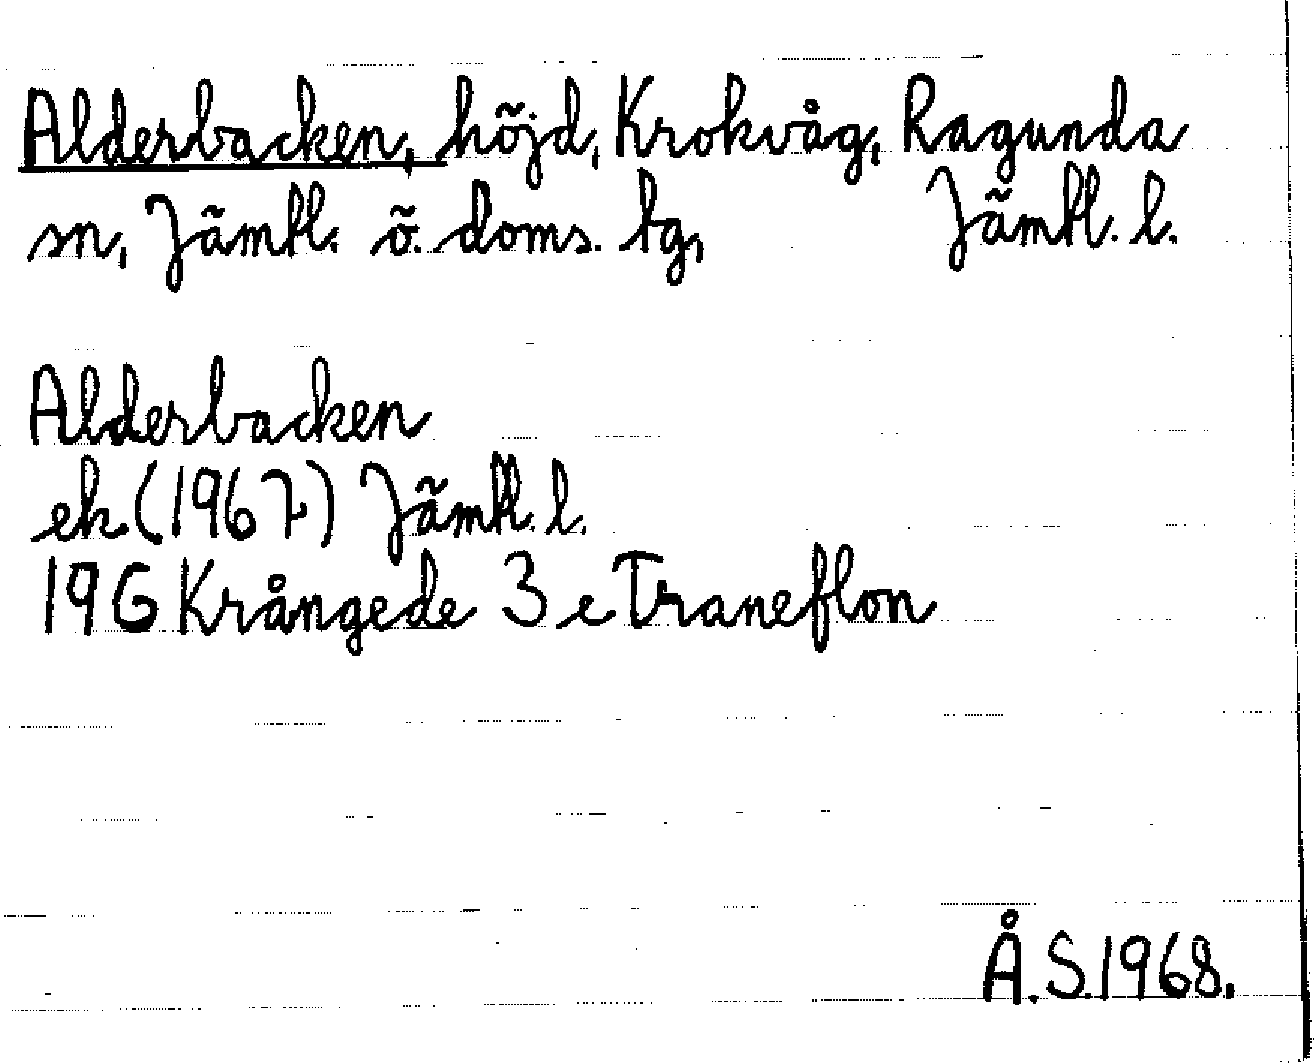 Alderbacken, höjd, Krokvåg, Ragunda
sn, Jämtl. ö. doms. tg, Jämtl. l.
Alderbacken
ek (1967) Jämtl. l.
19G Krångede 3 e Traneflon
Å.S. 1968.